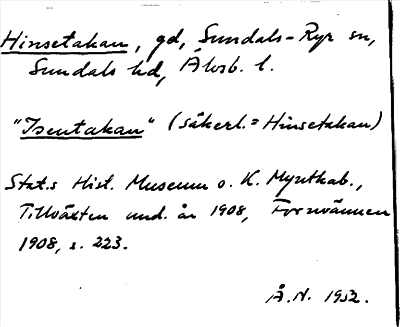 Hinsetakan, gd, Sundals-Ryr sn,
Sundals hd, Älvsb. l.
"Isentakan" (säkerl. = Hinsetakan)
Stat:s Hist. Museum o. K. Myntkab.,
Tillväxten und. år 1908, Fornvännen
1908, s. 223.
Å.N. 1952.